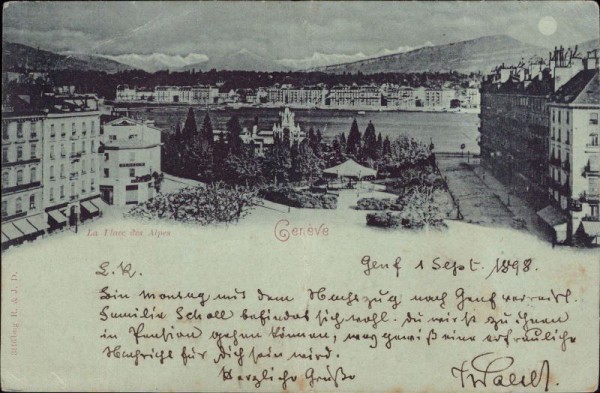 La Place des Alpes
Genève
Genf 1 Sept. 1898.
L. K.
Bin Montag mit dem Nachtzug nach Genf verreist.
Familie Scholl befindet sich wohl. du wirst zu ihnen
in Pension gehen können, was gewiß eine erfreuliche
Nachricht für Dich sein wird.
Herzliche Grüße